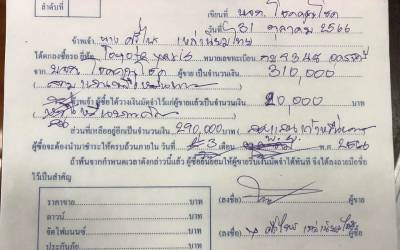 ลำดับที่
เขียนที่ นจก. โชคคูณโชค
วันที่ 31 ตุลาคม 2566
ข้าพเจ้า นาง ศรีไพร เหล่านิยมไทย
ได้ตกลงซื้อรถ ยี่ห้อ Toyota yaris หมายเลขทะเบียน 9348
จาก นจก. โชคคูณโชค ผู้ขาย เป็นจำนวนเงิน 310,000
ข้าพเจ้า ผู้ซื้อได้วางเงินมัดจำไว้แก่ผู้ขายแล้วเป็นจำนวนเงิน 20,000 บาท
ส่วนที่เหลืออยู่อีกเป็นจำนวนเงิน 290,000 บาท
ผู้ซื้อจะต้องนำมาชำระให้ครบถ้วนภายใน วันที่ 3 เดือน พ.ย. พ.ศ. 2566
ถ้าพ้นจากกำหนดเวลาดังกล่าวนี้แล้ว ผู้ซื้อยินยอมให้ผู้ขายริบเงินมัดจำได้ทันที จึงได้ลงลายมือชื่อ
ไว้เป็นสำคัญ
ราคาขาย บาท (ลงชื่อ) ผู้ขาย
ดาวน์ บาท
จัดไฟแนนซ์ บาท (ลงชื่อ) ศรีไพร เหล่านิยมไทย ผู้ซื้อ
ประกันภัย